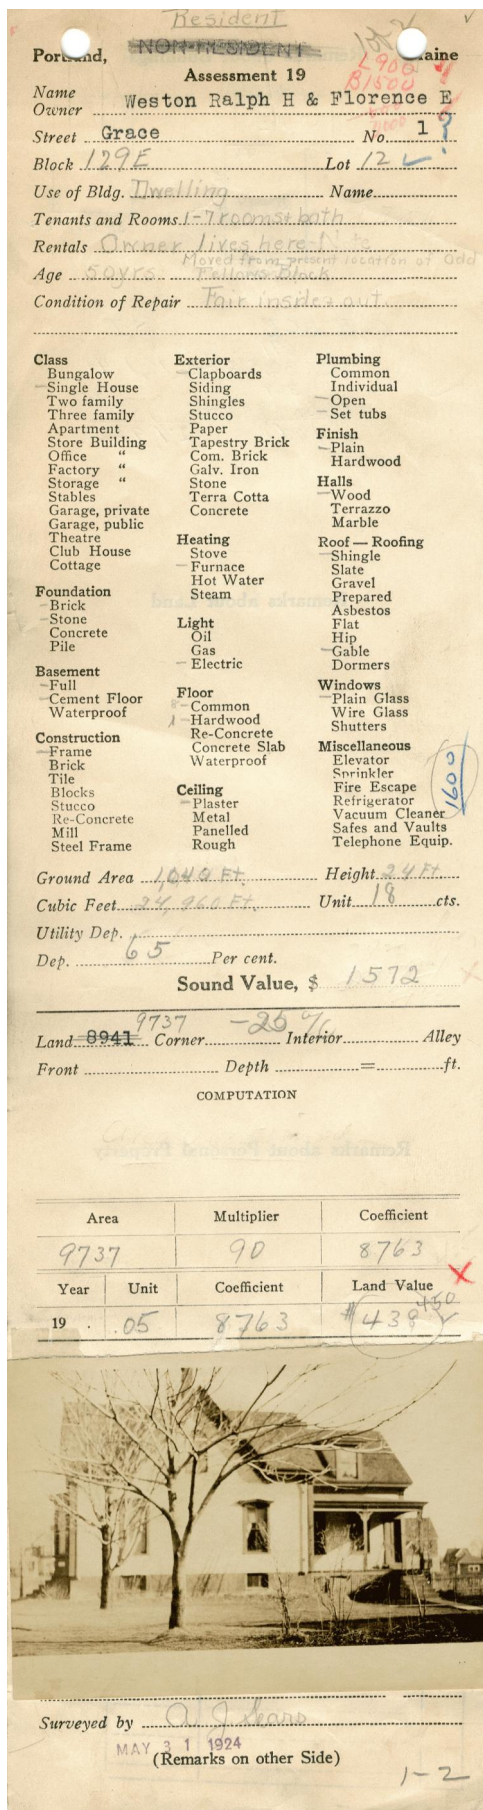 Resident
NON-RESIDENT
Portland, Maine
Assessment 19
L 900
B 1500
Name
Owner Weston Ralph H & Florence E
Street Grace No. 1 ?
Block 129E Lot 12
Use of Bldg. Dwelling Name
Tenants and Rooms 1-7 rooms & bath
Rentals Owner lives here
Moved from present location of Odd
Age 50 yrs. Fellows Block
Condition of Repair Fair inside & out
Class
Bungalow
Single House
Two family
Three family
Apartment
Store Building
Office "
Factory "
Storage "
Stables
Garage, private
Garage, public
Theatre
Club House
Cottage
Foundation
Brick
Stone
Concrete
Pile
Basement
Full
Cement Floor
Waterproof
Construction
Frame
Brick
Tile
Blocks
Stucco
Re-Concrete
Mill
Steel Frame
Exterior
Clapboards
Siding
Shingles
Stucco
Paper
Tapestry Brick
Com. Brick
Galv. Iron
Stone
Terra Cotta
Concrete
Heating
Stove
Furnace
Hot Water
Steam
Light
Oil
Gas
Electric
Floor
Common
Hardwood
Re-Concrete
Concrete Slab
Waterproof
Ceiling
Plaster
Metal
Panelled
Rough
Plumbing
Common
Individual
Open
Set tubs
Finish
Plain
Hardwood
Halls
Wood
Terrazzo
Marble
Roof — Roofing
Shingle
Slate
Gravel
Prepared
Asbestos
Flat
Hip
Gable
Dormers
Windows
Plain Glass
Wire Glass
Shutters
Miscellaneous
Elevator
Sprinkler
Fire Escape
Refrigerator
Vacuum Cleaner
Safes and Vaults
Telephone Equip.
1600
Ground Area 1,040 Ft. Height 24 Ft.
Cubic Feet 24,960 Ft. Unit 18 cts.
Utility Dep.
Dep. 65 Per cent.
Sound Value, $ 1572
9737 -25%
Land 8941 Corner Interior Alley
Front Depth = ft.
COMPUTATION
Area Multiplier Coefficient
9737 90 8763
Year Unit Coefficient Land Value
450
19 .05 8763 $438
Surveyed by A J Sears
MAY 31 1924
(Remarks on other Side)
1-2